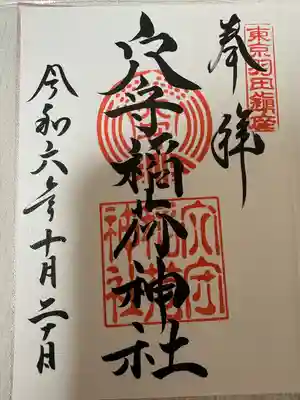 東京羽田鎮座
奉拝
穴守稲荷神社
穴守稲荷神社
令和六年十月二十日